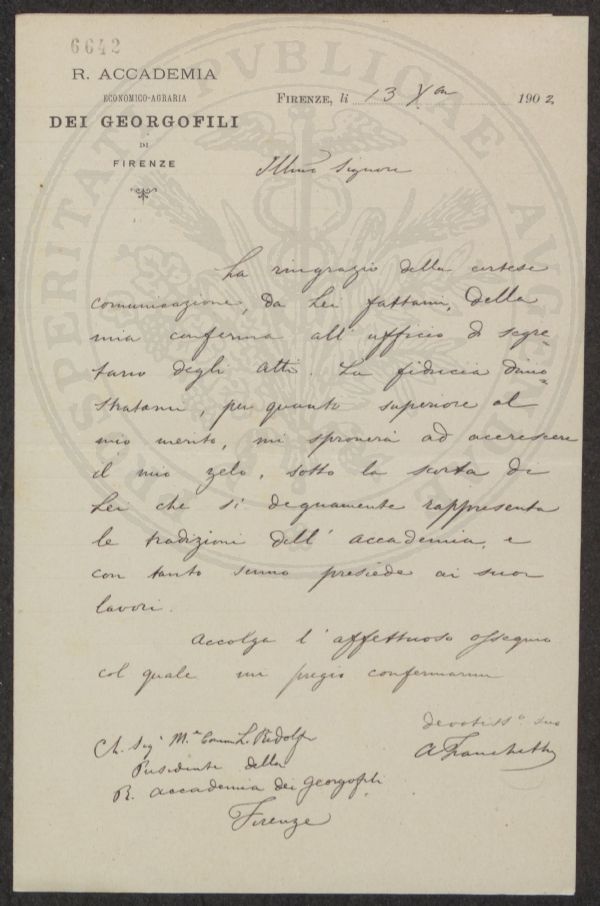 6642
R. ACCADEMIA
ECONOMICO-AGRARIA
DEI GEORGOFILI
DI
FIRENZE
FIRENZE, li 13 Xbre 1902
Illmo Signore
La ringrazio della cortese
comunicazione, da Lei fattami, della
mia conferma all'ufficio di segre-
tario degli Atti. La fiducia dimo-
stratami, per quanto superiore al
mio merito, mi spronerà ad accrescere
il mio zelo, sotto la scorta di
Lei che sì degnamente rappresenta
le tradizioni dell'Accademia, e
con tanto senno presiede ai suoi
lavori.
Accolga l'affettuoso ossequio
col quale mi pregio confermarmi
devotiss° suo
A Franchetti
Ch. Sigr M.se Comm. L. Ridolfi
Presidente della
R. Accademia dei Georgofili
Firenze
PROSPERITATI PVBLICAE AVGENDAE